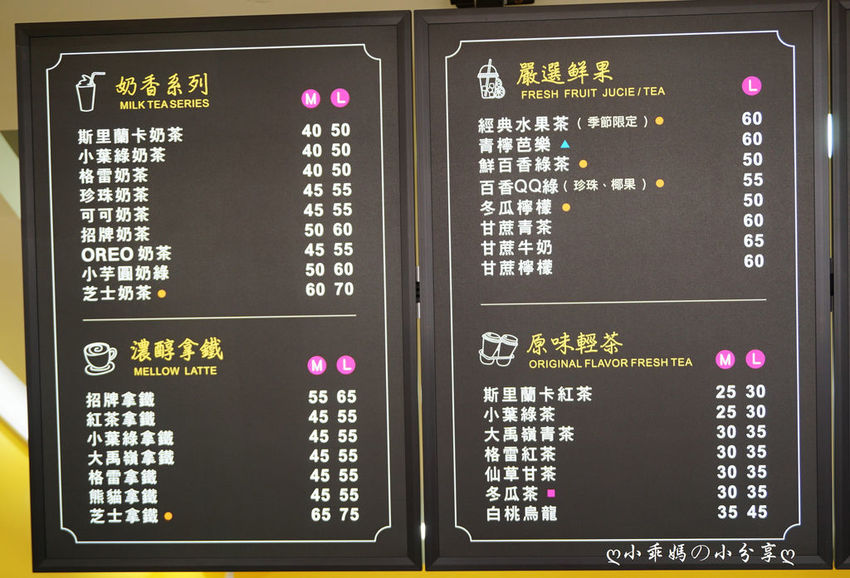 奶香系列
MILK TEA SERIES
M L
斯里蘭卡奶茶 40 50
小葉綠奶茶 40 50
格雷奶茶 40 50
珍珠奶茶 45 55
可可奶茶 45 55
招牌奶茶 50 60
OREO 奶茶 45 55
小芋圓奶綠 50 60
芝士奶茶 60 70
濃醇拿鐵
MELLOW LATTE
M L
招牌拿鐵 55 65
紅茶拿鐵 45 55
小葉綠拿鐵 45 55
大禹嶺拿鐵 45 55
格雷拿鐵 45 55
熊貓拿鐵 45 55
芝士拿鐵 65 75
嚴選鮮果
FRESH FRUIT JUCIE / TEA
L
經典水果茶 ( 季節限定 ) 60
青檸芭樂 60
鮮百香綠茶 50
百香QQ綠 ( 珍珠、椰果 ) 55
冬瓜檸檬 50
甘蔗青茶 60
甘蔗牛奶 65
甘蔗檸檬 60
原味輕茶
ORIGINAL FLAVOR FRESH TEA
M L
斯里蘭卡紅茶 25 30
小葉綠茶 25 30
大禹嶺青茶 30 35
格雷紅茶 30 35
仙草甘茶 30 35
冬瓜茶 30 35
白桃烏龍 35 45
ღ小乖媽の小分享ღ